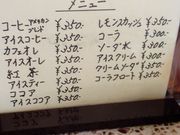 メニュー
コーヒー アメリカン ブレンド ¥350-
アイスコーヒー ¥350-
カフェオレ ¥350-
アイスオーレ ¥350-
紅茶 ¥350-
アイスティー ¥350-
ココア ¥350-
アイスココア ¥350-
レモンスカッシュ ¥350-
コーラ ¥300-
ソーダ水 ¥300-
アイスクリーム ¥300-
クリームソーダ ¥350-
コーラフロート ¥350-